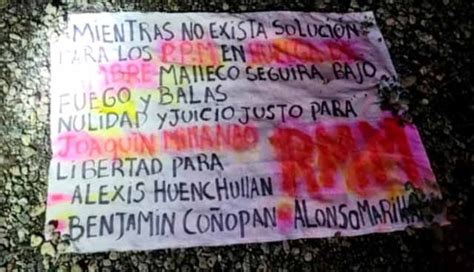 MIENTRAS NO EXISTA SOLUCIÓN
PARA LOS P.P.M EN HUELGA DE
HAMBRE MALLECO SEGUIRA, BAJO
FUEGO y BALAS
NULIDAD y JUICIO JUSTO PARA
JOAQUÍN MILLANAO
LIBERTAD PARA RMM
- ALEXIS HUENCHULLAN
- BENJAMIN COÑOPAN - ALONSO